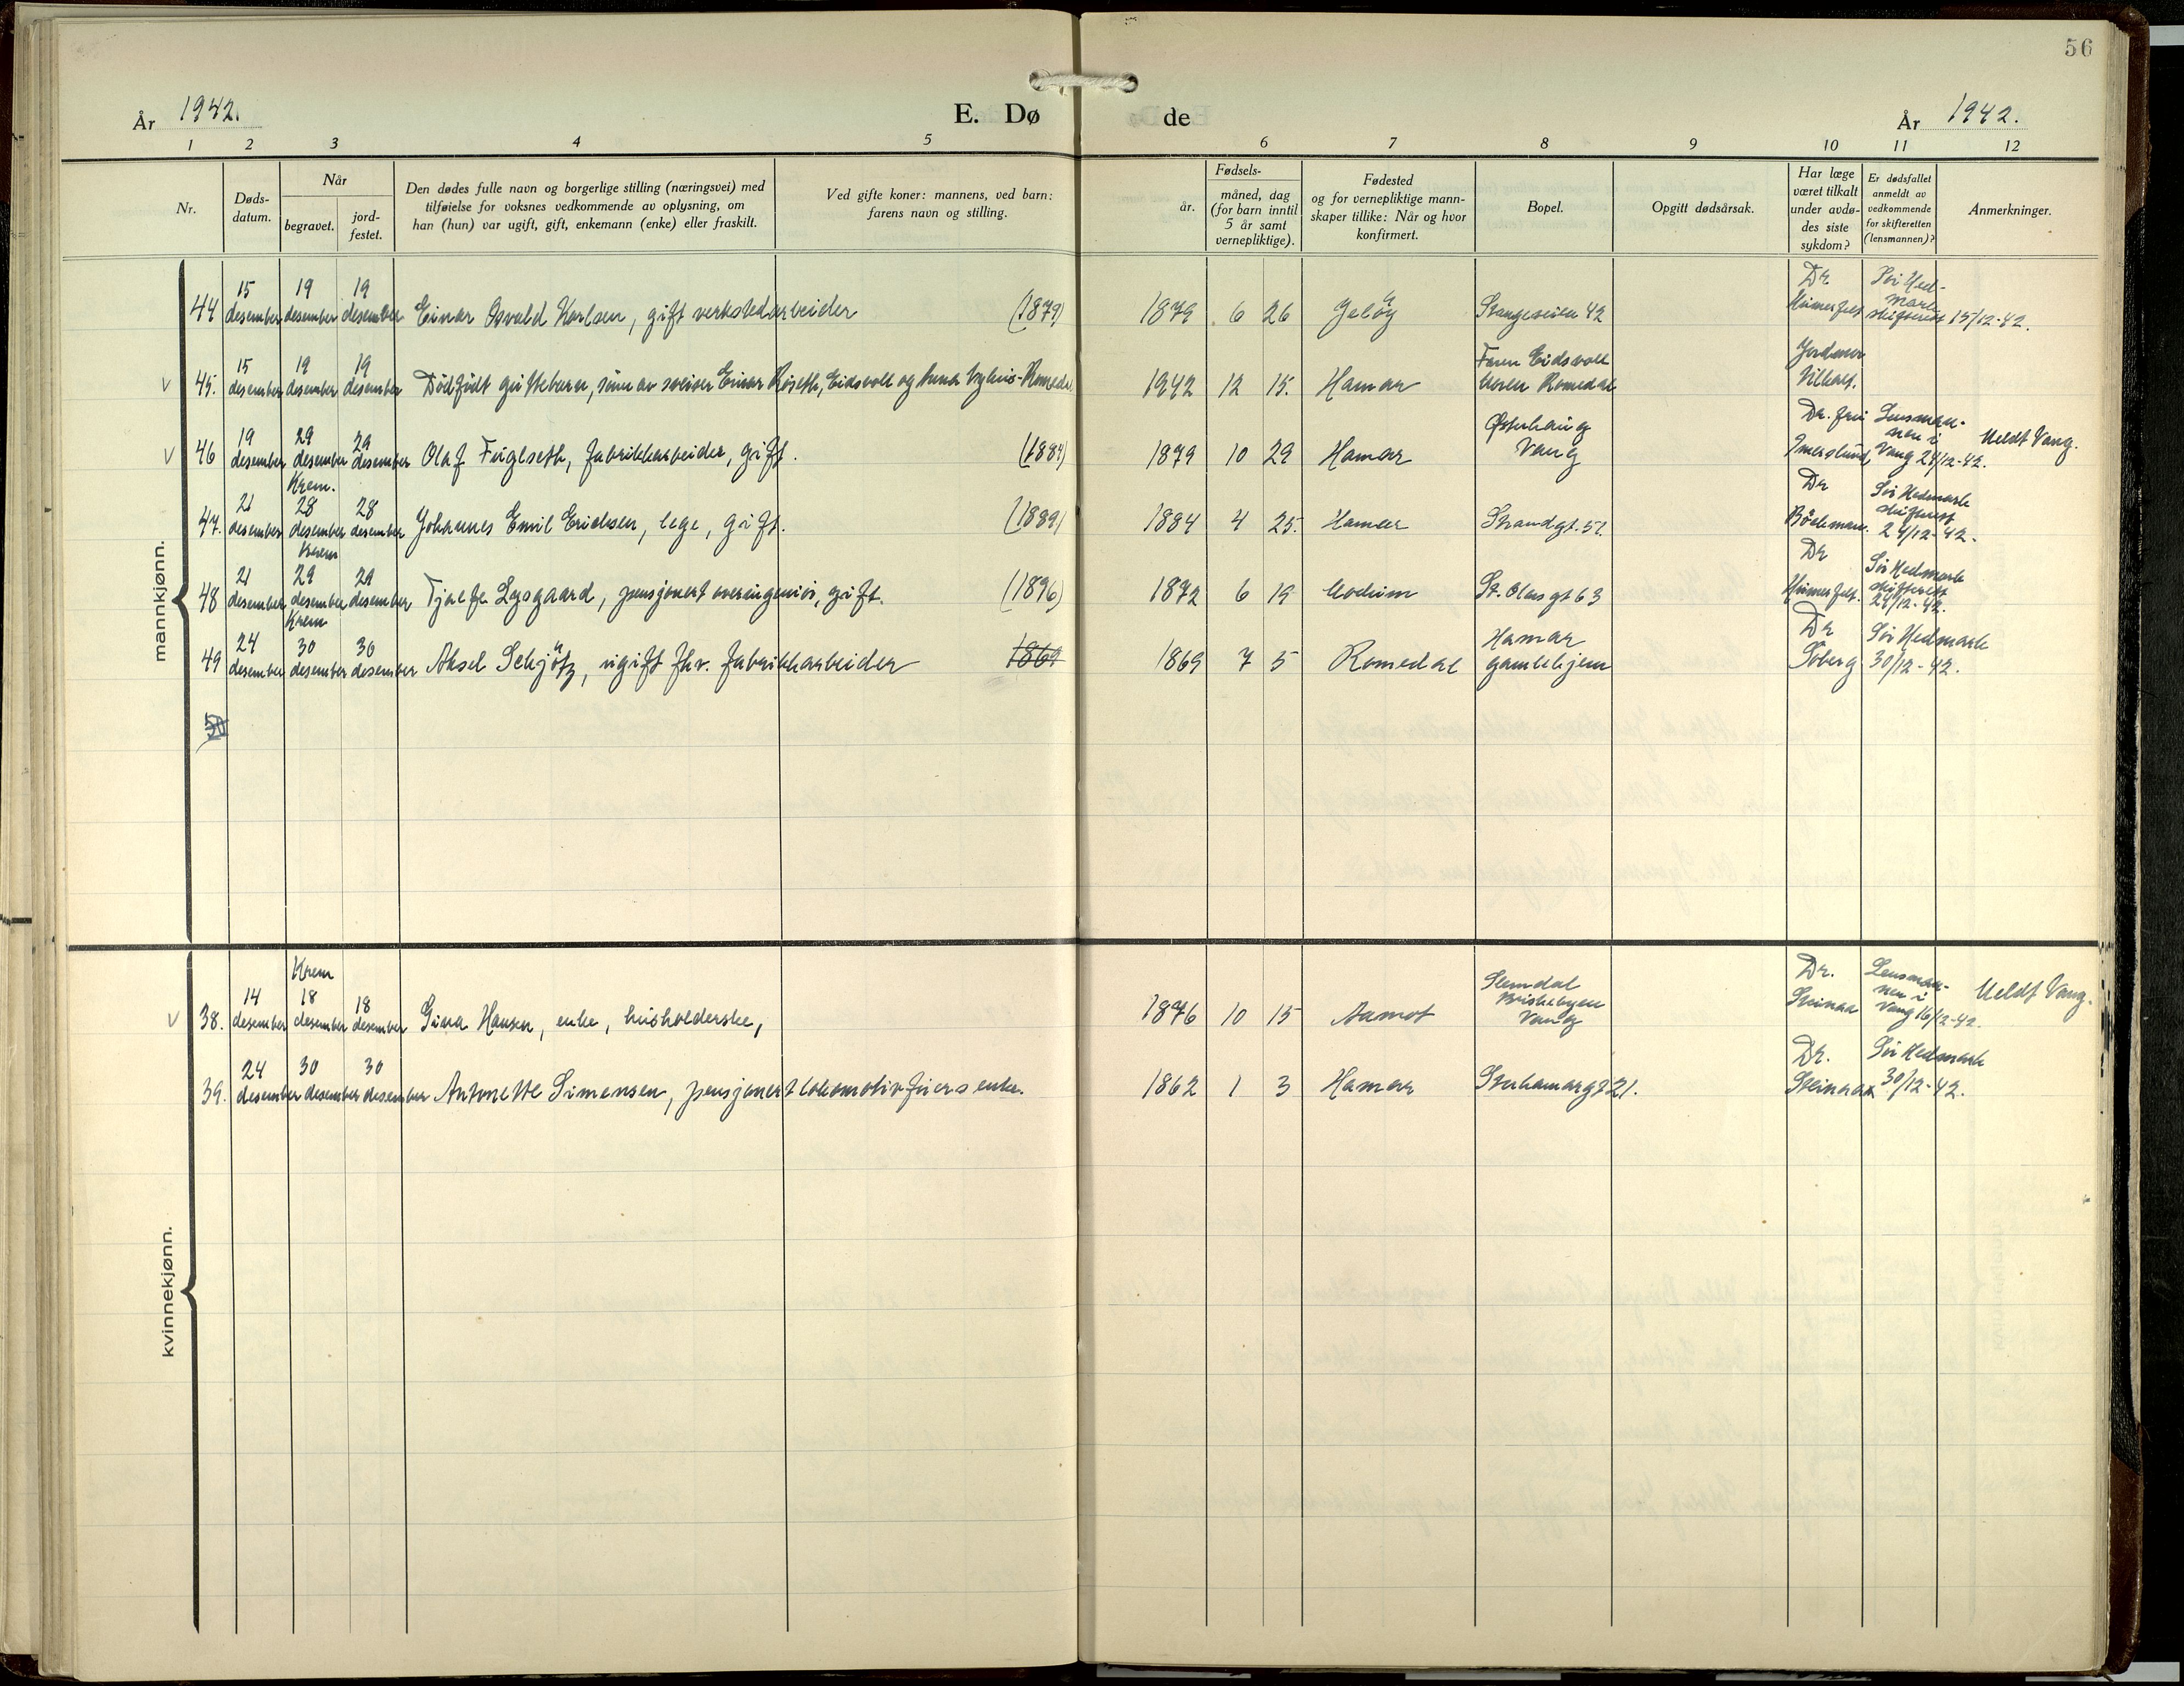 56
År 1942. E. Dø de År 1942.
1 2 3 4 5 6 7 8 9 10 11 12
Nr.
Døds-
datum.
Når
begravet.
jord-
festet.
Den dødes fulle navn og borgerlige stilling (næringsvei) med
tilføielse for voksnes vedkommende av oplysning, om
han (hun) var ugift, gift, enkemann (enke) eller fraskilt.
Ved gifte koner: mannens, ved barn:
farens navn og stilling.
Fødsels-
år.
måned, dag
(for barn inntil
5 år samt
vernepliktige).
Fødested
og for vernepliktige mann-
skaper tillike: Når og hvor
konfirmert.
Bopel.
Opgitt dødsårsak.
Har læge
været tilkalt
under avdø-
des siste
sykdom?
Er dødsfallet
anmeldt av
vedkommende
for skifteretten
(lensmannen)?
Anmerkninger.
mannkjønn.
15 19 19 Dr Sør Hed-
44 desember desember desember Einar Osvald Karlsen, gift verkstedarbeider (1879) 1879 6 26 Jeløy Stangeveien 42 mark skifterett 15/12-42.
15 19 19 Faren Eidsvoll Jordmor
V 45. desember desember desember Dödfödt guttebarn, sönn av sveiser Einar Röseth, Eidsvoll og Romedal 1942 12 15. Hamar Moren Romedal Tilkalt.
19 29 29 Østerhaug Dr. fru Lensman-
V 46 desember desember desember Olaf Fuglseth, fabrikkarbeider, gift. (1884) 1879 10 29 Hamar Vang Imerslund nen i Vang 24/12-42. Meldt Vang.
Krem.
21 28 28 Dr Sör Hedmark
47. desember desember desember Johannes Emil Erichsen, lege, gift. (1889) 1884 4 25. Hamar Strandgt. 57. Böckman. skifterett 24/12-42.
Krem
21 29 29 Dr Sör Hedmark
48 desember desember desember Tjalfe Lysgaard, pensjonert overingeniör, gift. (1896) 1872 6 19 Modum St. Olavsgt 63 skifterett 24/12-42.
Krem
24 30 30 Hamar Dr Sör Hedmark
49 desember desember desember Aksel Schjötz, ugift fhv. fabrikkarbeider 1869 1869 7 5 Romedal gamlehjem Soberg 30/12-42.
kvinnekjønn.
Krem
14 18 18 Slemdal Briskebyen Dr. Lensman-
V 38. desember desember desember Gina Hansen, enke, husholderske, 1876 10 15 Aamot Vang Steinaa nen i Vang 16/12-42. Meldt Vang.
24 30 30 Dr. Sör Hedmark
39. desember desember desember Antonette Simensen, pensjonert lokomotivförers enke. 1862 1 3 Hamar Storhamargt 21. Steinaa 30/12-42.